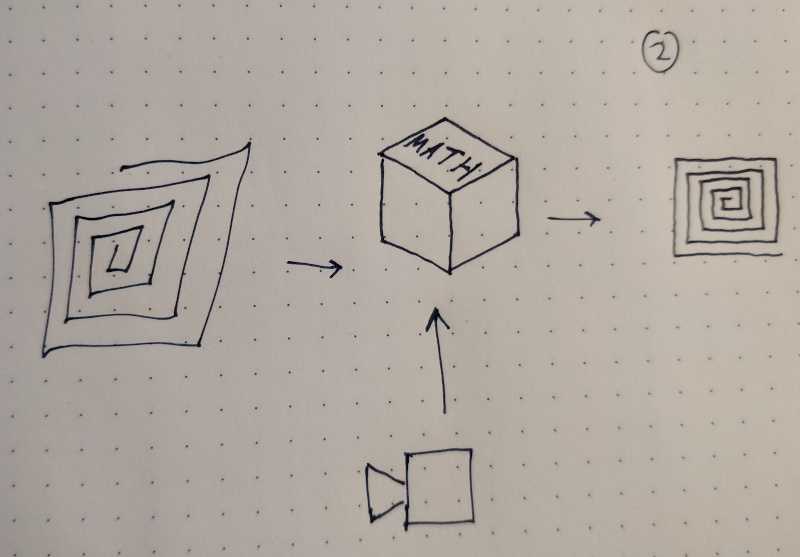 2
MATH